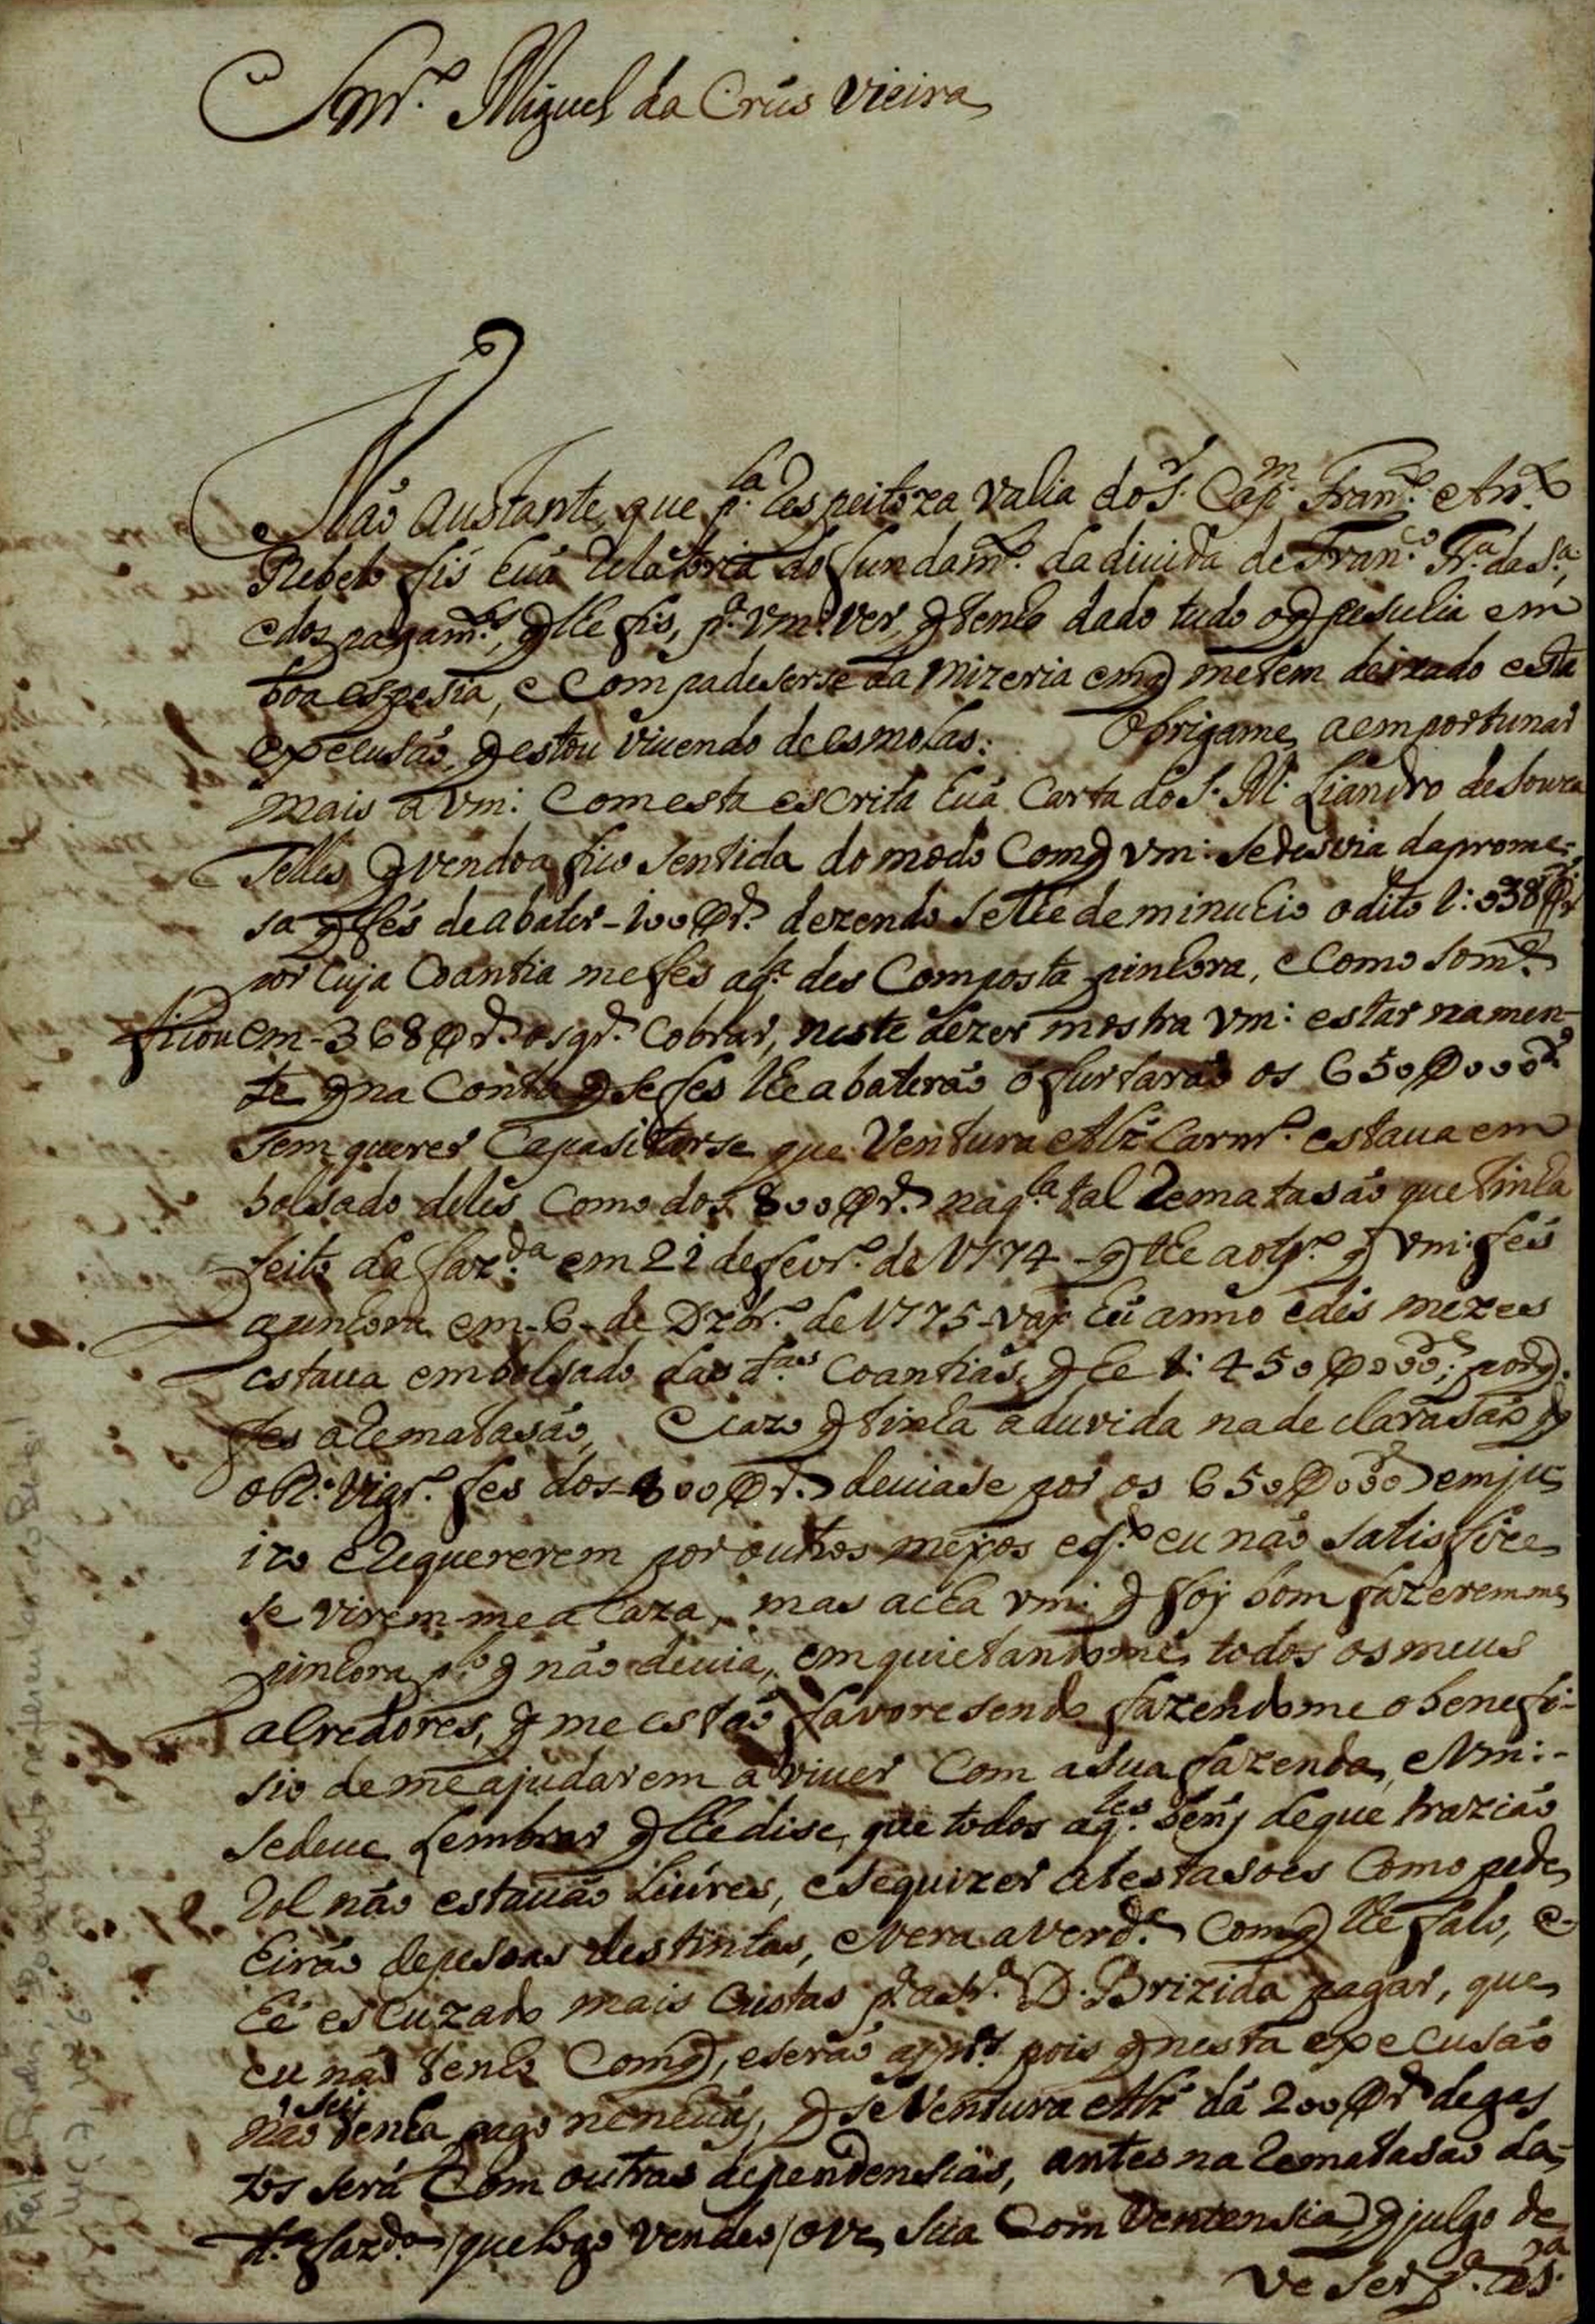 Snr.º Miguel da Crús Vieira
Não Austante, que p.la Respeitoza valia do S.r Cap.m Fran.co Ant.º
Rebelo fis huá Relatoria do fundam.to da diuida de Fran.co Fr.a da S.a,
e dos pagam.tos, q̃ lhe fis, p.a Vm: ver, q̃ tenho dado tudo o q̃ pesuhia em
boa espesia, e Compadeserse da mizeria em q̃ me tem deixado esta
expecusão, q̃ estou viuendo de esmolas: Obrigame, a emportunar
mais a Vm: Com esta escrita huá Carta do S. M. Liandro de Souza
Telles q̃ vendoa fico sentida do modo Com q̃ vm: se desvia da prome-
sa q̃ fés de abater - 100 Ø r.s dezendo se lhe deminuhio o dito 1:038 Ø r.s
por Cuja Coantia me fes aq.la des Composta pinhora, e Como som.te
ficou em - 368 Ø r.s os q̃r. Cobrar, neste dezer mostra Vm: estar na men-
te q̃ na Conta q̃ se fes lhe abaterão ó furtarão os 650 Ø 000 r.s
sem querer Capasitarse que Ventura Alz̃ Carnr.º estaua em
bolsado deles Como dos 800 Ø r.s naq.la tal Rematasão que tinha
feito da faz.da em 21 de fevr.º de 1774 - q̃ lhe ao tp.º q̃ Vm: fés
a pinhora em - 6 - de Dzbr.º de 1775 - vay hú anno e dés mezes
estaua embolsado das d.as Coantias, q̃ he 1: 450 Ø 000; por q̃
fes a Rematasão, E cazo q̃ tinha a duvida na de clarasão q̃
o R.º Vigr.º fes dos 800 Ø r.s deuiase por os 650 Ø 000 em ju
izo e Requererem por outros meyos e q.do eu não satisfizes
se virem-me a Caza, mas acha vm: q̃ foy bom fazerem me
pinhora p.lo q̃ não deuia, em quietandome todos os meus
alredores, q̃ me estão favoresendo fazendome o benefi-
sio de me ajudarem a viuer Com a sua fazenda, e Vm: -
se deue Lembrar q̃ lhe dise, que todos aq.les bens de que trazião
Rol não estauão Liures, e se quizer atestasoes Como pede,
hirão de pesoas destintas, e Vera a Verd.e Com q̃ lhe falo, e-
hé escuzado mais Custas p.a a Sr.a D. Brizida pagar, que
eu não tenho Com q̃, e serão as pr.as pois q̃ nesta expecusão
não sey tenha pago nenhuãs, q̃ se Ventura Alz̃ dá 200 Ø r.s de gas
tos será Com outras dependensias, antes na Rematasão da
d.a faz.da /que logo Vendeo/ ove sua Com Ventensia, q̃ julgo de
ve ser p.a